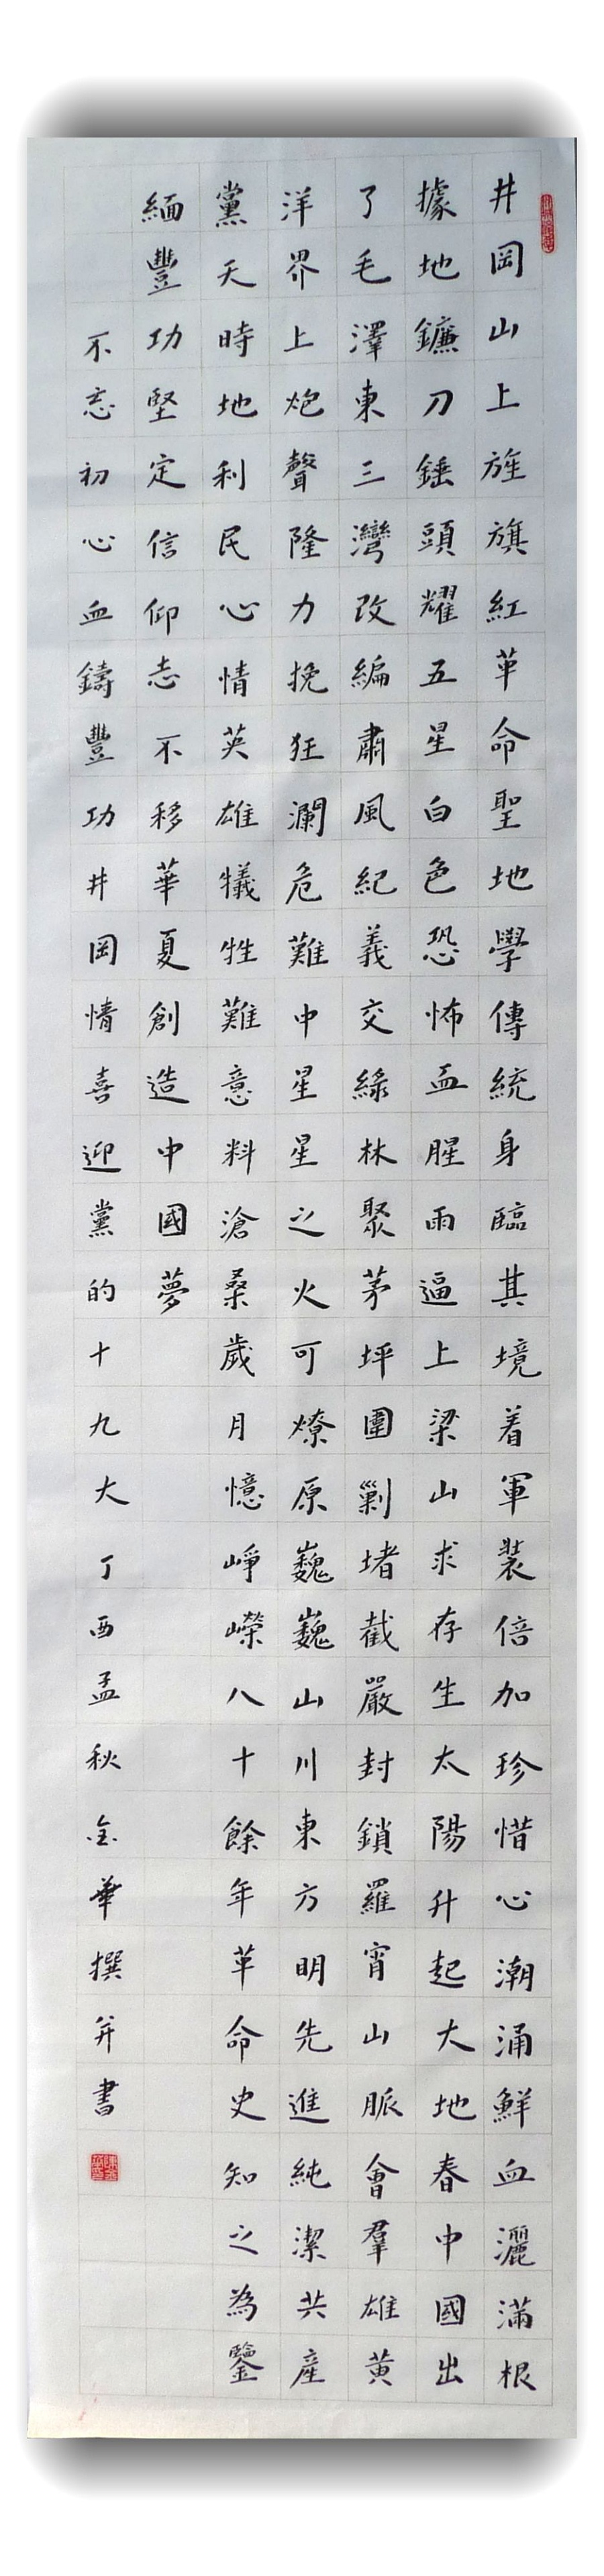 井岡山上旌旗紅革命聖地學傳統身臨其境着軍裝倍加珍惜心潮涌鮮血灑滿根
據地鐮刀錘頭耀五星白色恐怖血腥雨逼上梁山求存生太陽升起大地春中國出
了毛澤東三灣改編肅風紀義交綠林聚茅坪圍剿堵截嚴封鎖羅宵山脈會羣雄黄
洋界上炮聲隆力挽狂瀾危難中星星之火可燎原巍巍山川東方明先進純潔共産
黨天時地利民心情英雄犧牲難意料滄桑歲月憶崢嶸八十餘年革命史知之為鑒
緬豐功堅定信仰志不移華夏創造中國夢
不忘初心血鑄豐功井岡情喜迎黨的十九大 丁酉孟秋金華撰并書